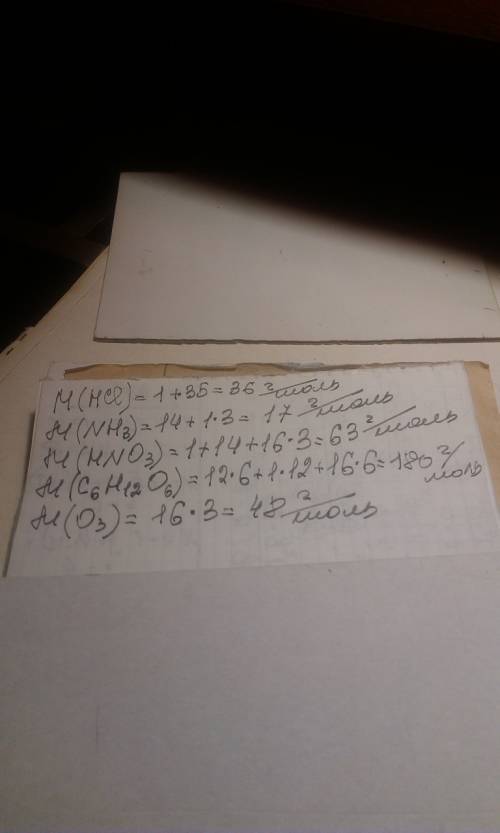 M(HCl) = 1+35 = 36 г/моль
M(NH3) = 14+1·3 = 17 г/моль
M(HNO3) = 1+14+16·3 = 63 г/моль
M(C6H12O6) = 12·6+1·12+16·6 = 180 г/моль
M(O3) = 16·3 = 48 г/моль